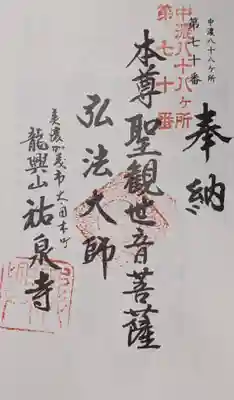 中濃八十八ヶ所
第七十番
奉納
中濃八十八ヶ所
第七十番
本尊聖観世音菩薩
弘法大師
美濃加茂市太田本町
龍興山祐泉寺